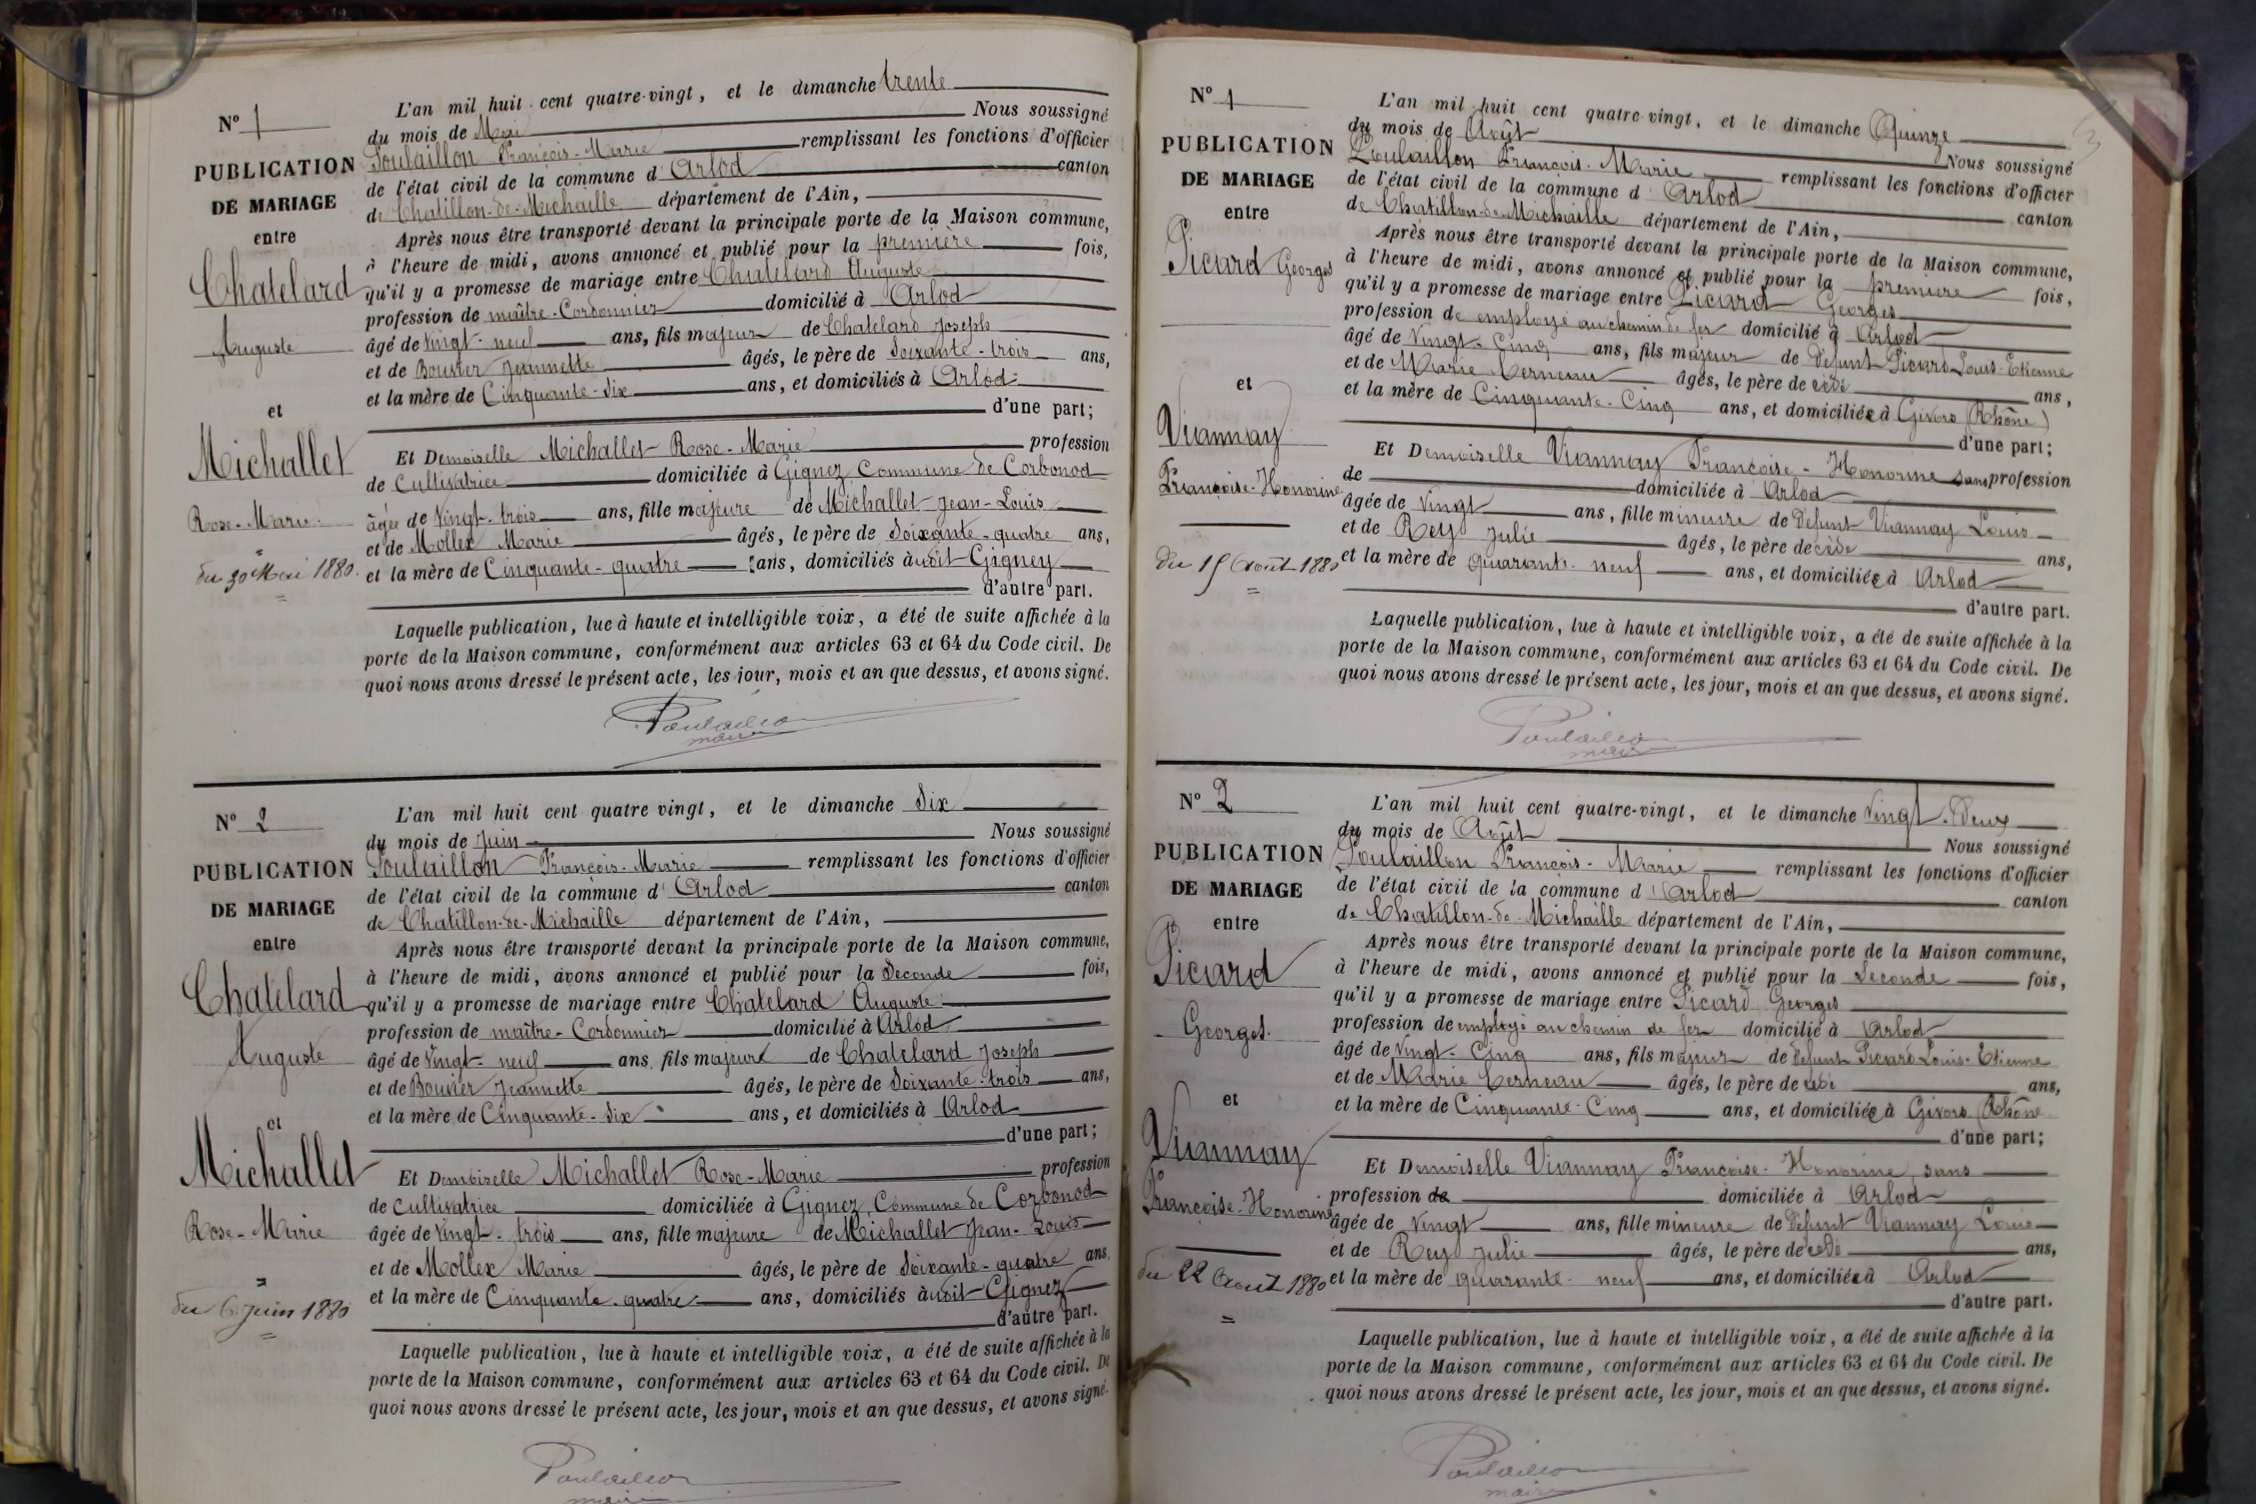 N° 1
PUBLICATION
DE MARIAGE
entre
Chatelard
Auguste
et
Michallet
Rose-Marie
du 30 Mai 1880.
L'an mil huit cent quatre-vingt, et le dimanche trente
du mois de Mai Nous soussigné
Poulaillon François-Marie remplissant les fonctions d'officier
de l'état civil de la commune d'Arlod canton
de Chatillon-de-Michaille département de l'Ain,
Après nous être transporté devant la principale porte de la Maison commune,
à l'heure de midi, avons annoncé et publié pour la première fois,
qu'il y a promesse de mariage entre Chatelard Auguste
profession de maître-Cordonnier domicilié à Arlod
âgé de vingt-neuf ans, fils majeur de Chatelard Joseph
et de Bouvier Jeannette âgés, le père de Soixante-trois ans,
et la mère de Cinquante-Six ans, et domiciliés à Arlod
d'une part;
Et Demoiselle Michallet Rose-Marie profession
de Cultivatrice domiciliée à Gignez Commune de Corbonod
âgée de Vingt-trois ans, fille majeure de Michallet Jean-Louis
et de Mollex Marie âgés, le père de Soixante-quatre ans,
et la mère de Cinquante-quatre ans, domiciliés à udit Gigney
d'autre part.
Laquelle publication, lue à haute et intelligible voix, a été de suite affichée à la
porte de la Maison commune, conformément aux articles 63 et 64 du Code civil. De
quoi nous avons dressé le présent acte, les jour, mois et an que dessus, et avons signé.
Poulaillon
maire
N° 2
PUBLICATION
DE MARIAGE
entre
Chatelard
Auguste
et
Michallet
Rose-Marie
du 6 Juin 1880
L'an mil huit cent quatre vingt, et le dimanche Six
du mois de Juin Nous soussigné
Poulaillon François-Marie remplissant les fonctions d'officier
de l'état civil de la commune d'Arlod canton
de Chatillon-de-Michaille département de l'Ain,
Après nous être transporté devant la principale porte de la Maison commune,
à l'heure de midi, avons annoncé et publié pour la Seconde fois,
qu'il y a promesse de mariage entre Chatelard Auguste
profession de maître-Cordonnier domicilié à Arlod
âgé de Vingt-neuf ans, fils majeur de Chatelard Joseph
et de Bouvier Jeannette âgés, le père de Soixante-trois ans,
et la mère de Cinquante-Six ans, et domiciliés à Arlod
d'une part;
Et Demoiselle Michallet Rose-Marie profession
de Cultivatrice domiciliée à Gignez Commune de Corbonod
âgée de Vingt-trois ans, fille majeure de Michallet Jean-Louis
et de Mollex Marie âgés, le père de Soixante-quatre ans,
et la mère de Cinquante-quatre ans, domiciliés à udit Gignez
d'autre part.
Laquelle publication, lue à haute et intelligible voix, a été de suite affichée à la
porte de la Maison commune, conformément aux articles 63 et 64 du Code civil. De
quoi nous avons dressé le présent acte, les jour, mois et an que dessus, et avons signé.
Poulaillon
maire
N° 1
PUBLICATION
DE MARIAGE
entre
Picard Georges
et
Viannay
Françoise-Honorine
du 15 Août 1880
L'an mil huit cent quatre-vingt, et le dimanche Quinze
du mois de Août Nous soussigné
Poulaillon François-Marie remplissant les fonctions d'officier
de l'état civil de la commune d'Arlod canton
de Chatillon-de-Michaille département de l'Ain,
Après nous être transporté devant la principale porte de la Maison commune,
à l'heure de midi, avons annoncé et publié pour la première fois,
qu'il y a promesse de mariage entre Picard Georges
profession de employé au chemin de fer domicilié à Arlod
âgé de Vingt-Cinq ans, fils majeur de Défunt Picard Louis-Etienne
et de Marie Cerneau âgés, le père de cédé ans,
et la mère de Cinquante-Cinq ans, et domiciliée à Givors (Rhône)
d'une part;
Et Demoiselle Viannay Françoise-Honorine sans profession
de domiciliée à Arlod
âgée de Vingt ans, fille mineure de Défunt Viannay Louis
et de Rey Julie âgés, le père de cédé ans,
et la mère de quarante-neuf ans, et domiciliée à Arlod
d'autre part.
Laquelle publication, lue à haute et intelligible voix, a été de suite affichée à la
porte de la Maison commune, conformément aux articles 63 et 64 du Code civil. De
quoi nous avons dressé le présent acte, les jour, mois et an que dessus, et avons signé.
Poulaillon
maire
N° 2
PUBLICATION
DE MARIAGE
entre
Picard
Georges.
et
Viannay
Françoise-Honorine
du 22 Août 1880
L'an mil huit cent quatre-vingt, et le dimanche Vingt-Deux
du mois de Août Nous soussigné
Poulaillon François-Marie remplissant les fonctions d'officier
de l'état civil de la commune d'Arlod canton
de Chatillon-de-Michaille département de l'Ain,
Après nous être transporté devant la principale porte de la Maison commune,
à l'heure de midi, avons annoncé et publié pour la Seconde fois,
qu'il y a promesse de mariage entre Picard Georges
profession de employé au chemin de fer domicilié à Arlod
âgé de Vingt-Cinq ans, fils majeur de défunt Picard Louis-Etienne
et de Marie Cerneau âgés, le père de cédé ans,
et la mère de Cinquante-Cinq ans, et domiciliée à Givors (Rhône
d'une part;
Et Demoiselle Viannay Françoise-Honorine, sans
profession de domiciliée à Arlod
âgée de Vingt ans, fille mineure de Défunt Viannay Louis
et de Rey Julie âgés, le père de cédé ans,
et la mère de quarante-neuf ans, et domiciliée à Arlod
d'autre part.
Laquelle publication, lue à haute et intelligible voix, a été de suite affichée à la
porte de la Maison commune, conformément aux articles 63 et 64 du Code civil. De
quoi nous avons dressé le présent acte, les jour, mois et an que dessus, et avons signé.
Poulaillon
maire